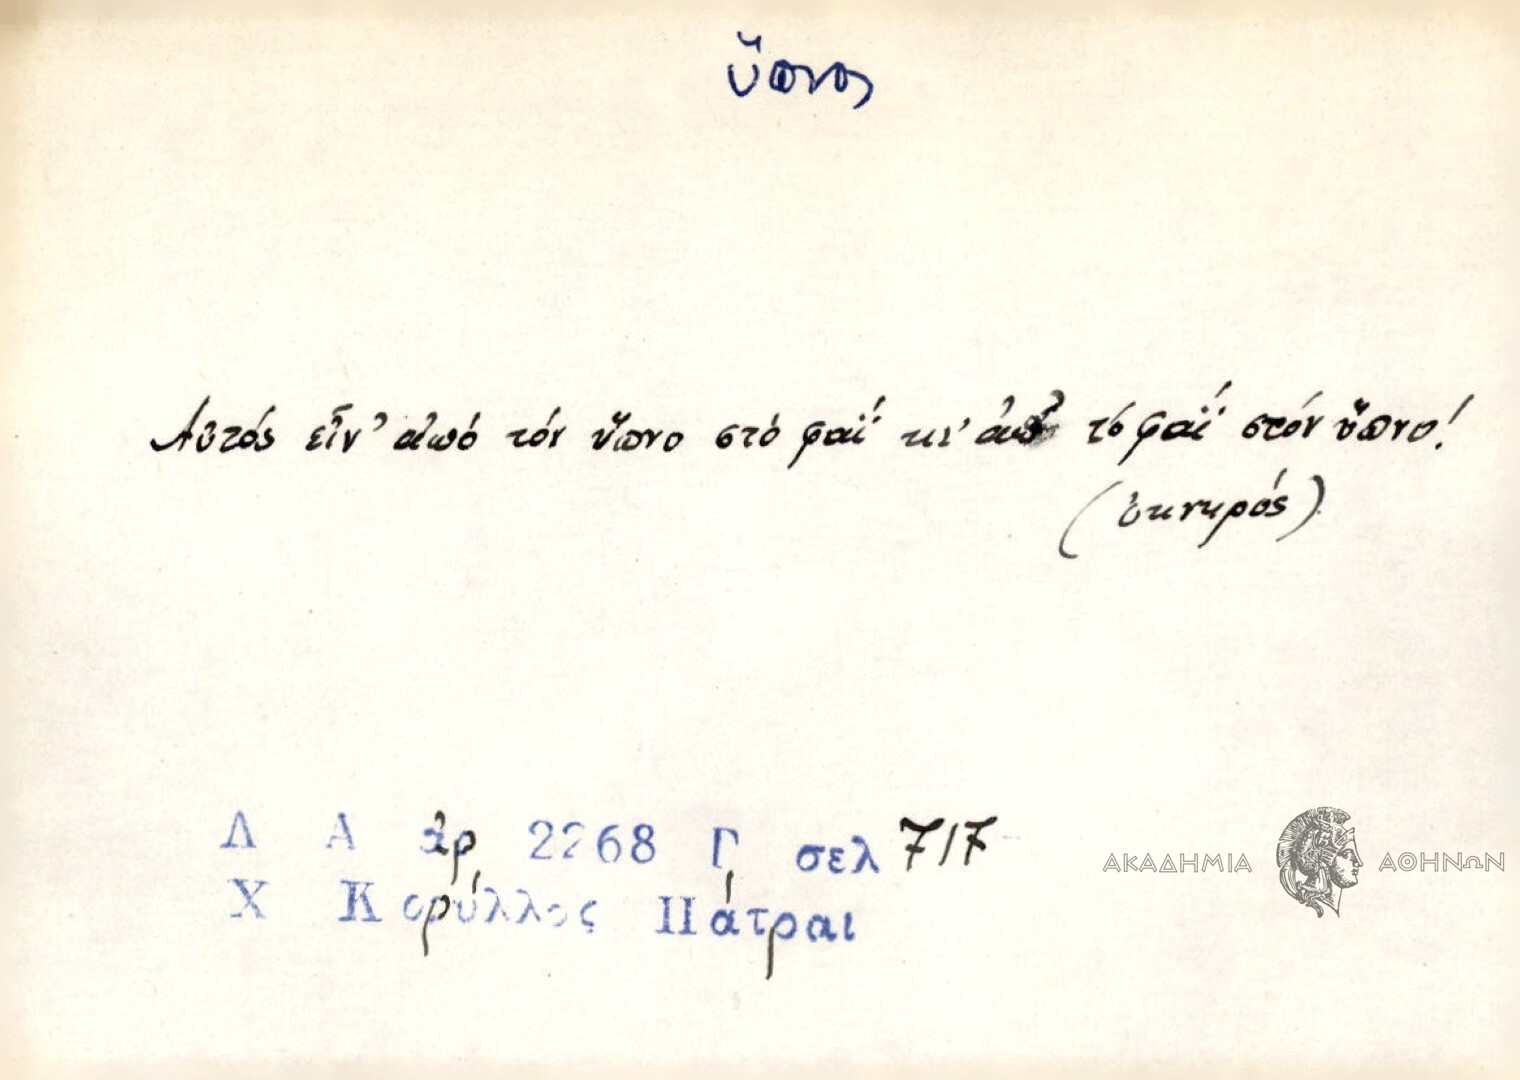 ὕπνος
Αὐτός εἶν' ἀπό τόν ὕπνο στό φαΐ κι' ἀπό τό φαΐ στόν ὕπνο!
(ὀκνηρός)
Λ Α ἀρ 2268 Γ σελ 717
Χ Κορύλλος Πάτραι
ΑΚΑΔΗΜΙΑ ΑΘΗΝΩΝ